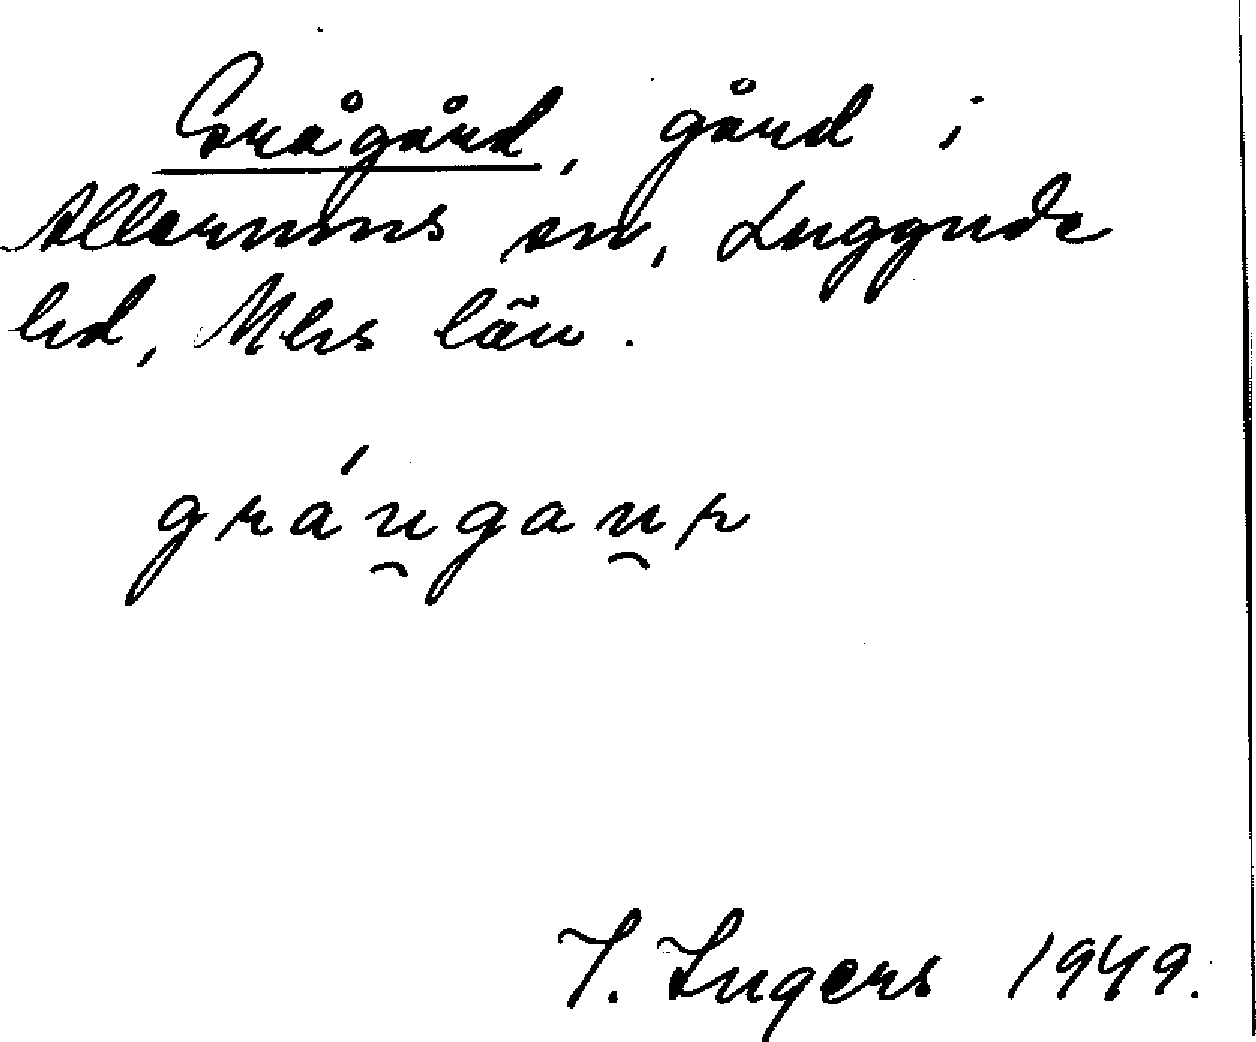 Grågård, gård i
Allerums sn, Luggude
hd, Mhs län.
gráu̯gau̯r
I. Ingers 1949.